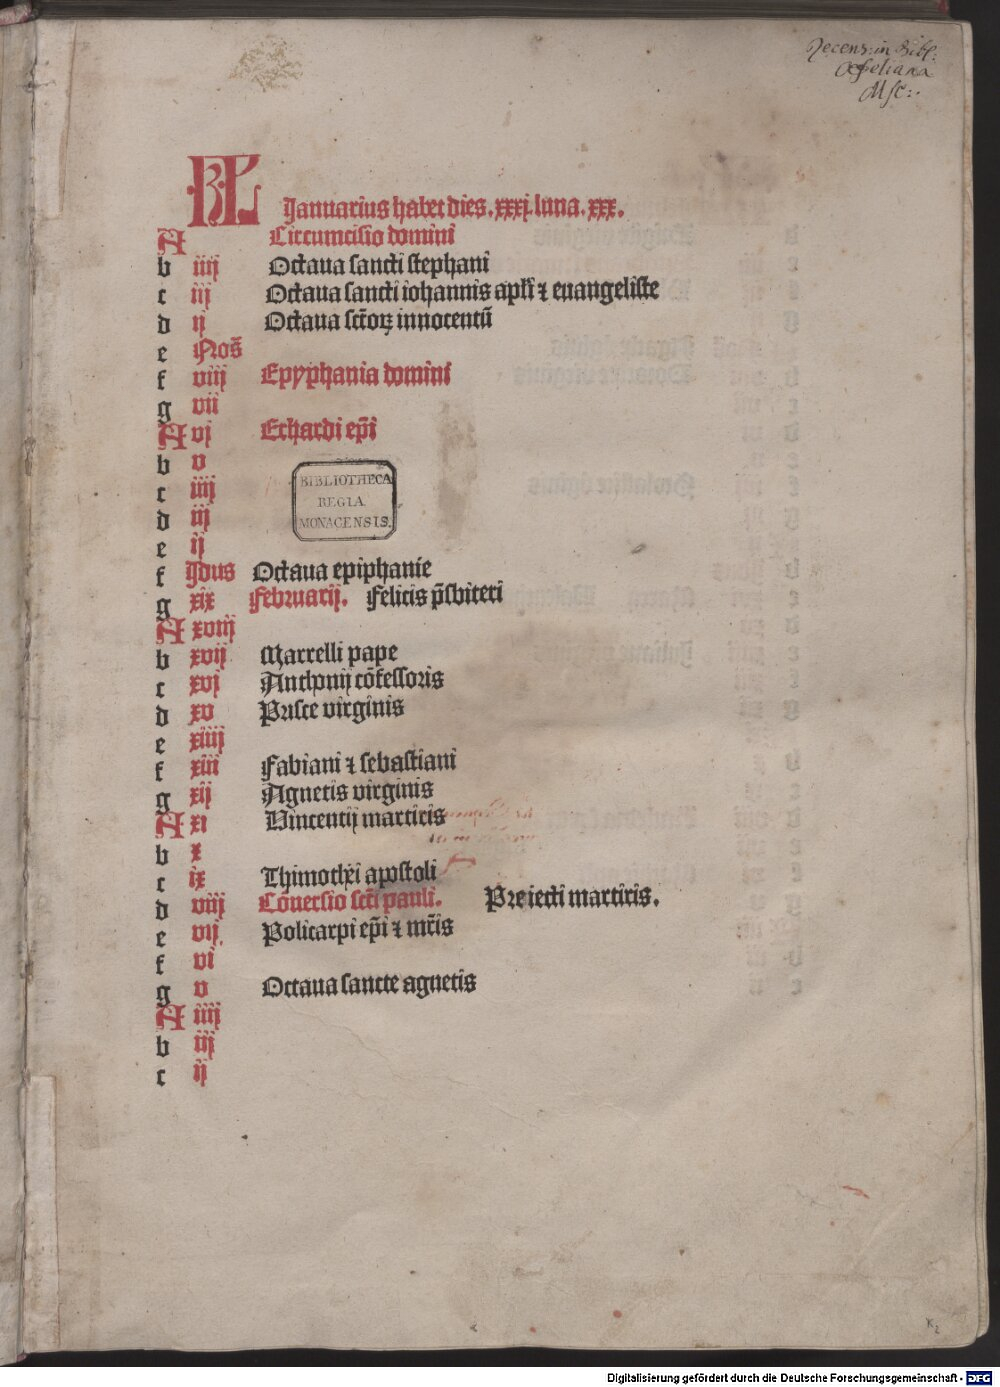 Recens: in Bibl:
Msc:.
KL Januarius habet dies .xxxj. luna .xxx.
A Circumcisio domini
b iiij Octaua sancti stephani
c iij Octaua sancti iohannis apłi ⁊ euangeliste
d ij Octaua sct̄oꝝ innocentū
e Nos̄
f viij Epyphania domini
g vij
A vj Erhardi ep̄i
b v
c iiij
d iij
e ij
f Jdus Octaua epiphanie
g xix Februarij. Felicis p̄sbiteri
A xviij
b xvij Marcelli pape
c xvj Anthonij cōfessoris
d xv Prisce virginis
e xiiij
f xiij Fabiani ⁊ sebastiani
g xij Agnetis virginis
A xi Vincentij martiris
b x
c ix Thimothei apostoli
d viij Cōuersio sct̄i pauli. Preiecti martiris.
e vij. Policarpi ep̄i ⁊ mr̄is
f vi
g v Octaua sancte agnetis
A iiij
b iij
c ij
BIBLIOTHECA
REGIA
MONACENSIS.
Digitalisierung gefördert durch die Deutsche Forschungsgemeinschaft - DFG